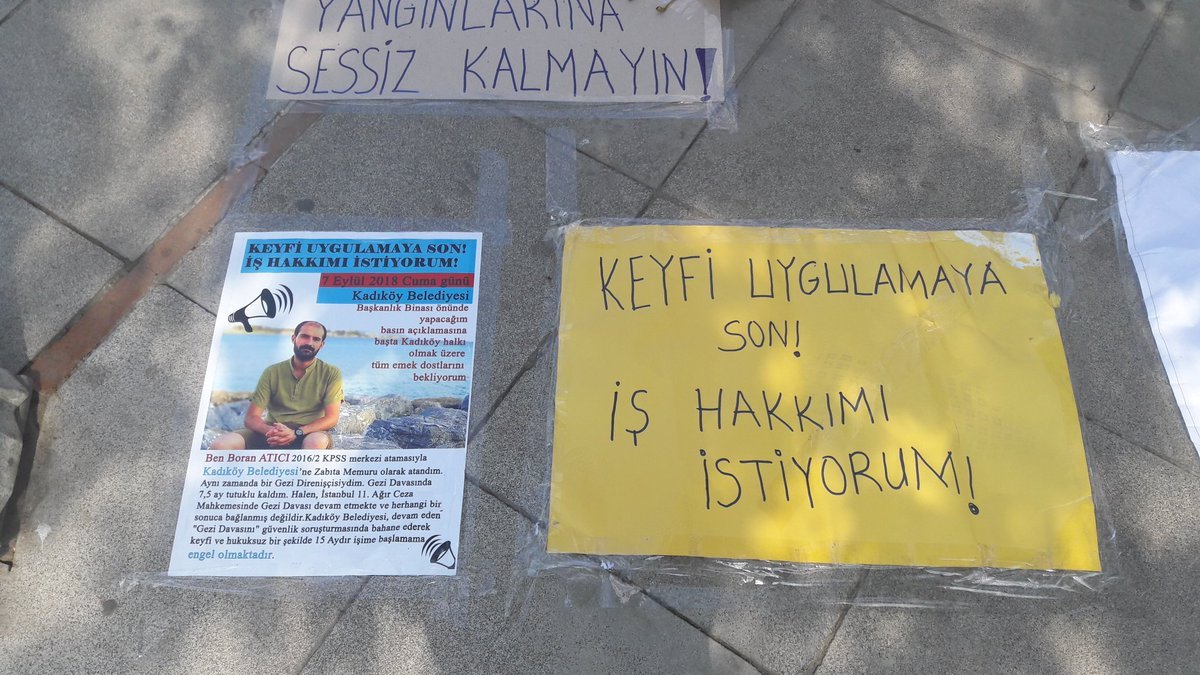 YANGINLARINA
SESSİZ KALMAYIN!
KEYFİ UYGULAMAYA SON!
İŞ HAKKIMI İSTİYORUM!
7 Eylül 2018 Cuma günü
Kadıköy Belediyesi
Başkanlık Binası önünde
yapacağım
basın açıklamasına
başta Kadıköy halkı
olmak üzere
tüm emek dostlarını
bekliyorum
Ben Boran ATICI 2016/2 KPSS merkezi atamasıyla
Kadıköy Belediyesi'ne Zabıta Memuru olarak atandım.
Aynı zamanda bir Gezi Direnişçisiydim. Gezi Davasında
7,5 ay tutuklu kaldım. Halen, İstanbul 11. Ağır Ceza
Mahkemesinde Gezi Davası devam etmekte ve herhangi bir
sonuca bağlanmış değildir.Kadıköy Belediyesi, devam eden
"Gezi Davasını" güvenlik soruşturmasında bahane ederek
keyfi ve hukuksuz bir şekilde 15 Aydır işime başlamama
engel olmaktadır.
KEYFİ UYGULAMAYA
SON!
İŞ HAKKIMI
İSTİYORUM!